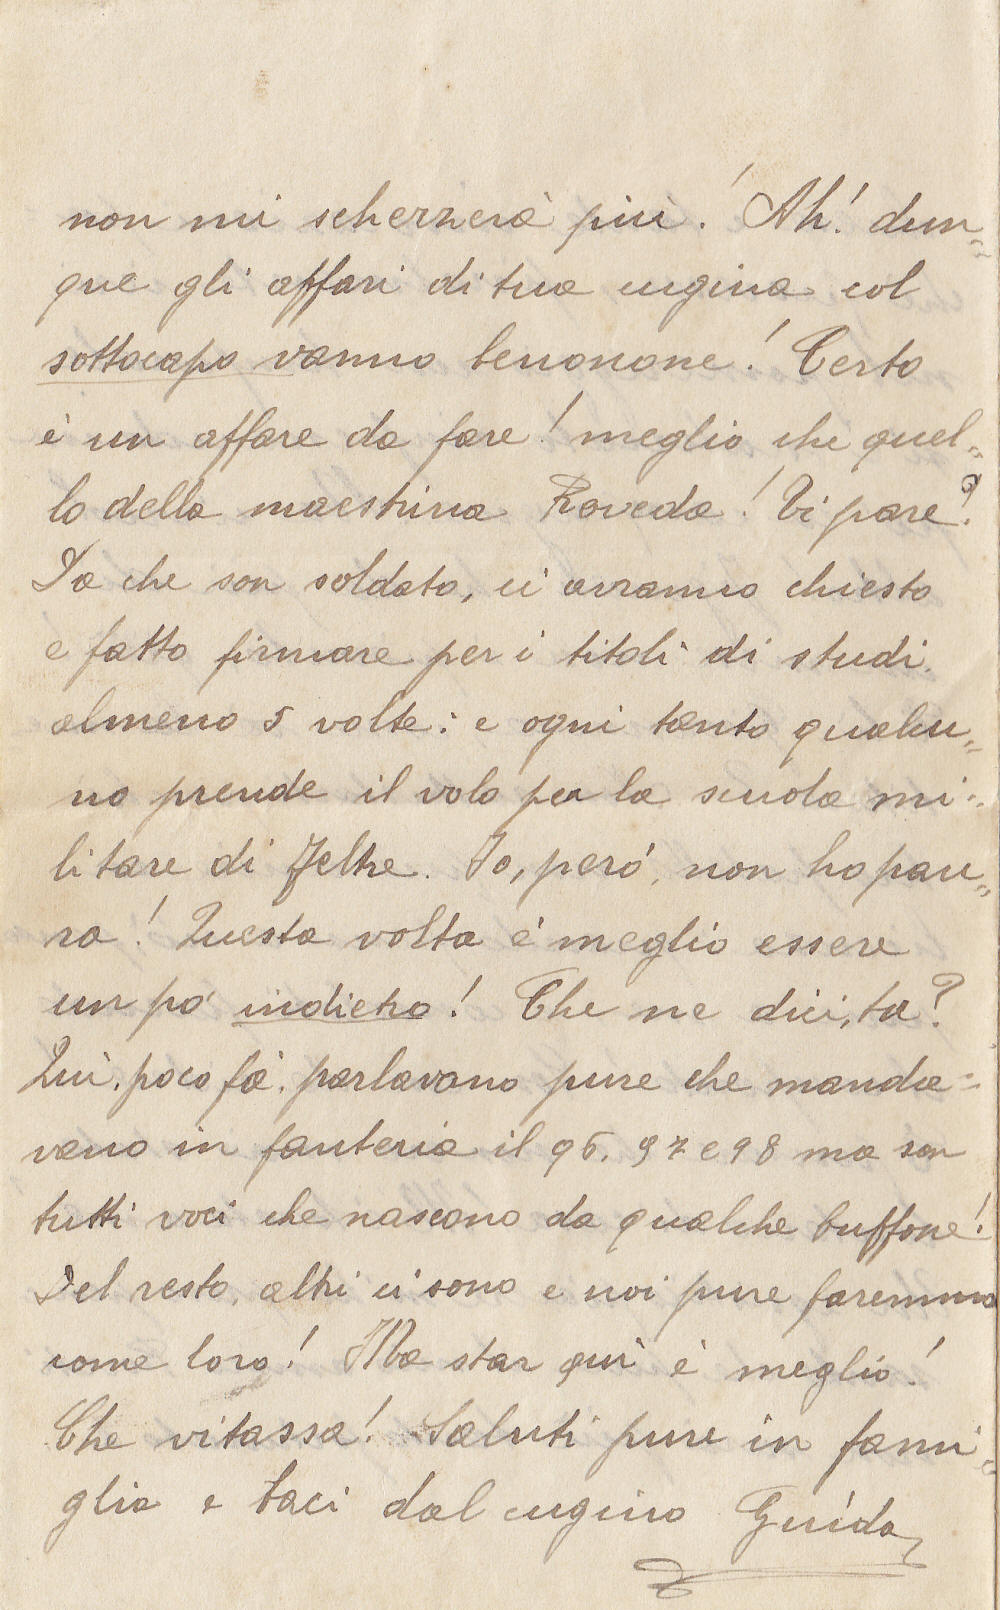 non mi scherzerà più! Ah! dun=
que gli affari di tua cugina col
sottocapo vanno benonone! Certo
è un affare da fare! meglio che quel=
lo della maestrina Roveda! Ti pare?
Da che son soldato, ci avranno chiesto
e fatto firmare per i titoli di studi
almeno 5 volte: e ogni tanto qualcu=
no prende il volo per la scuola mi=
litare di Feltre. Io, però, non ho pau=
ra! Questa volta è meglio essere
un po' indietro! Che ne dici, tu?
Quì, poco fà, parlavano pure che manda=
vano in fanteria il 96, 97 e 98 ma son
tutti voci che nascono da qualche buffone!
Del resto, altri ci sono e noi pure faremmo
come loro! Ma star quì è meglio!
Che vitassa! Saluti pure in fami=
glia e baci dal cugino Guido